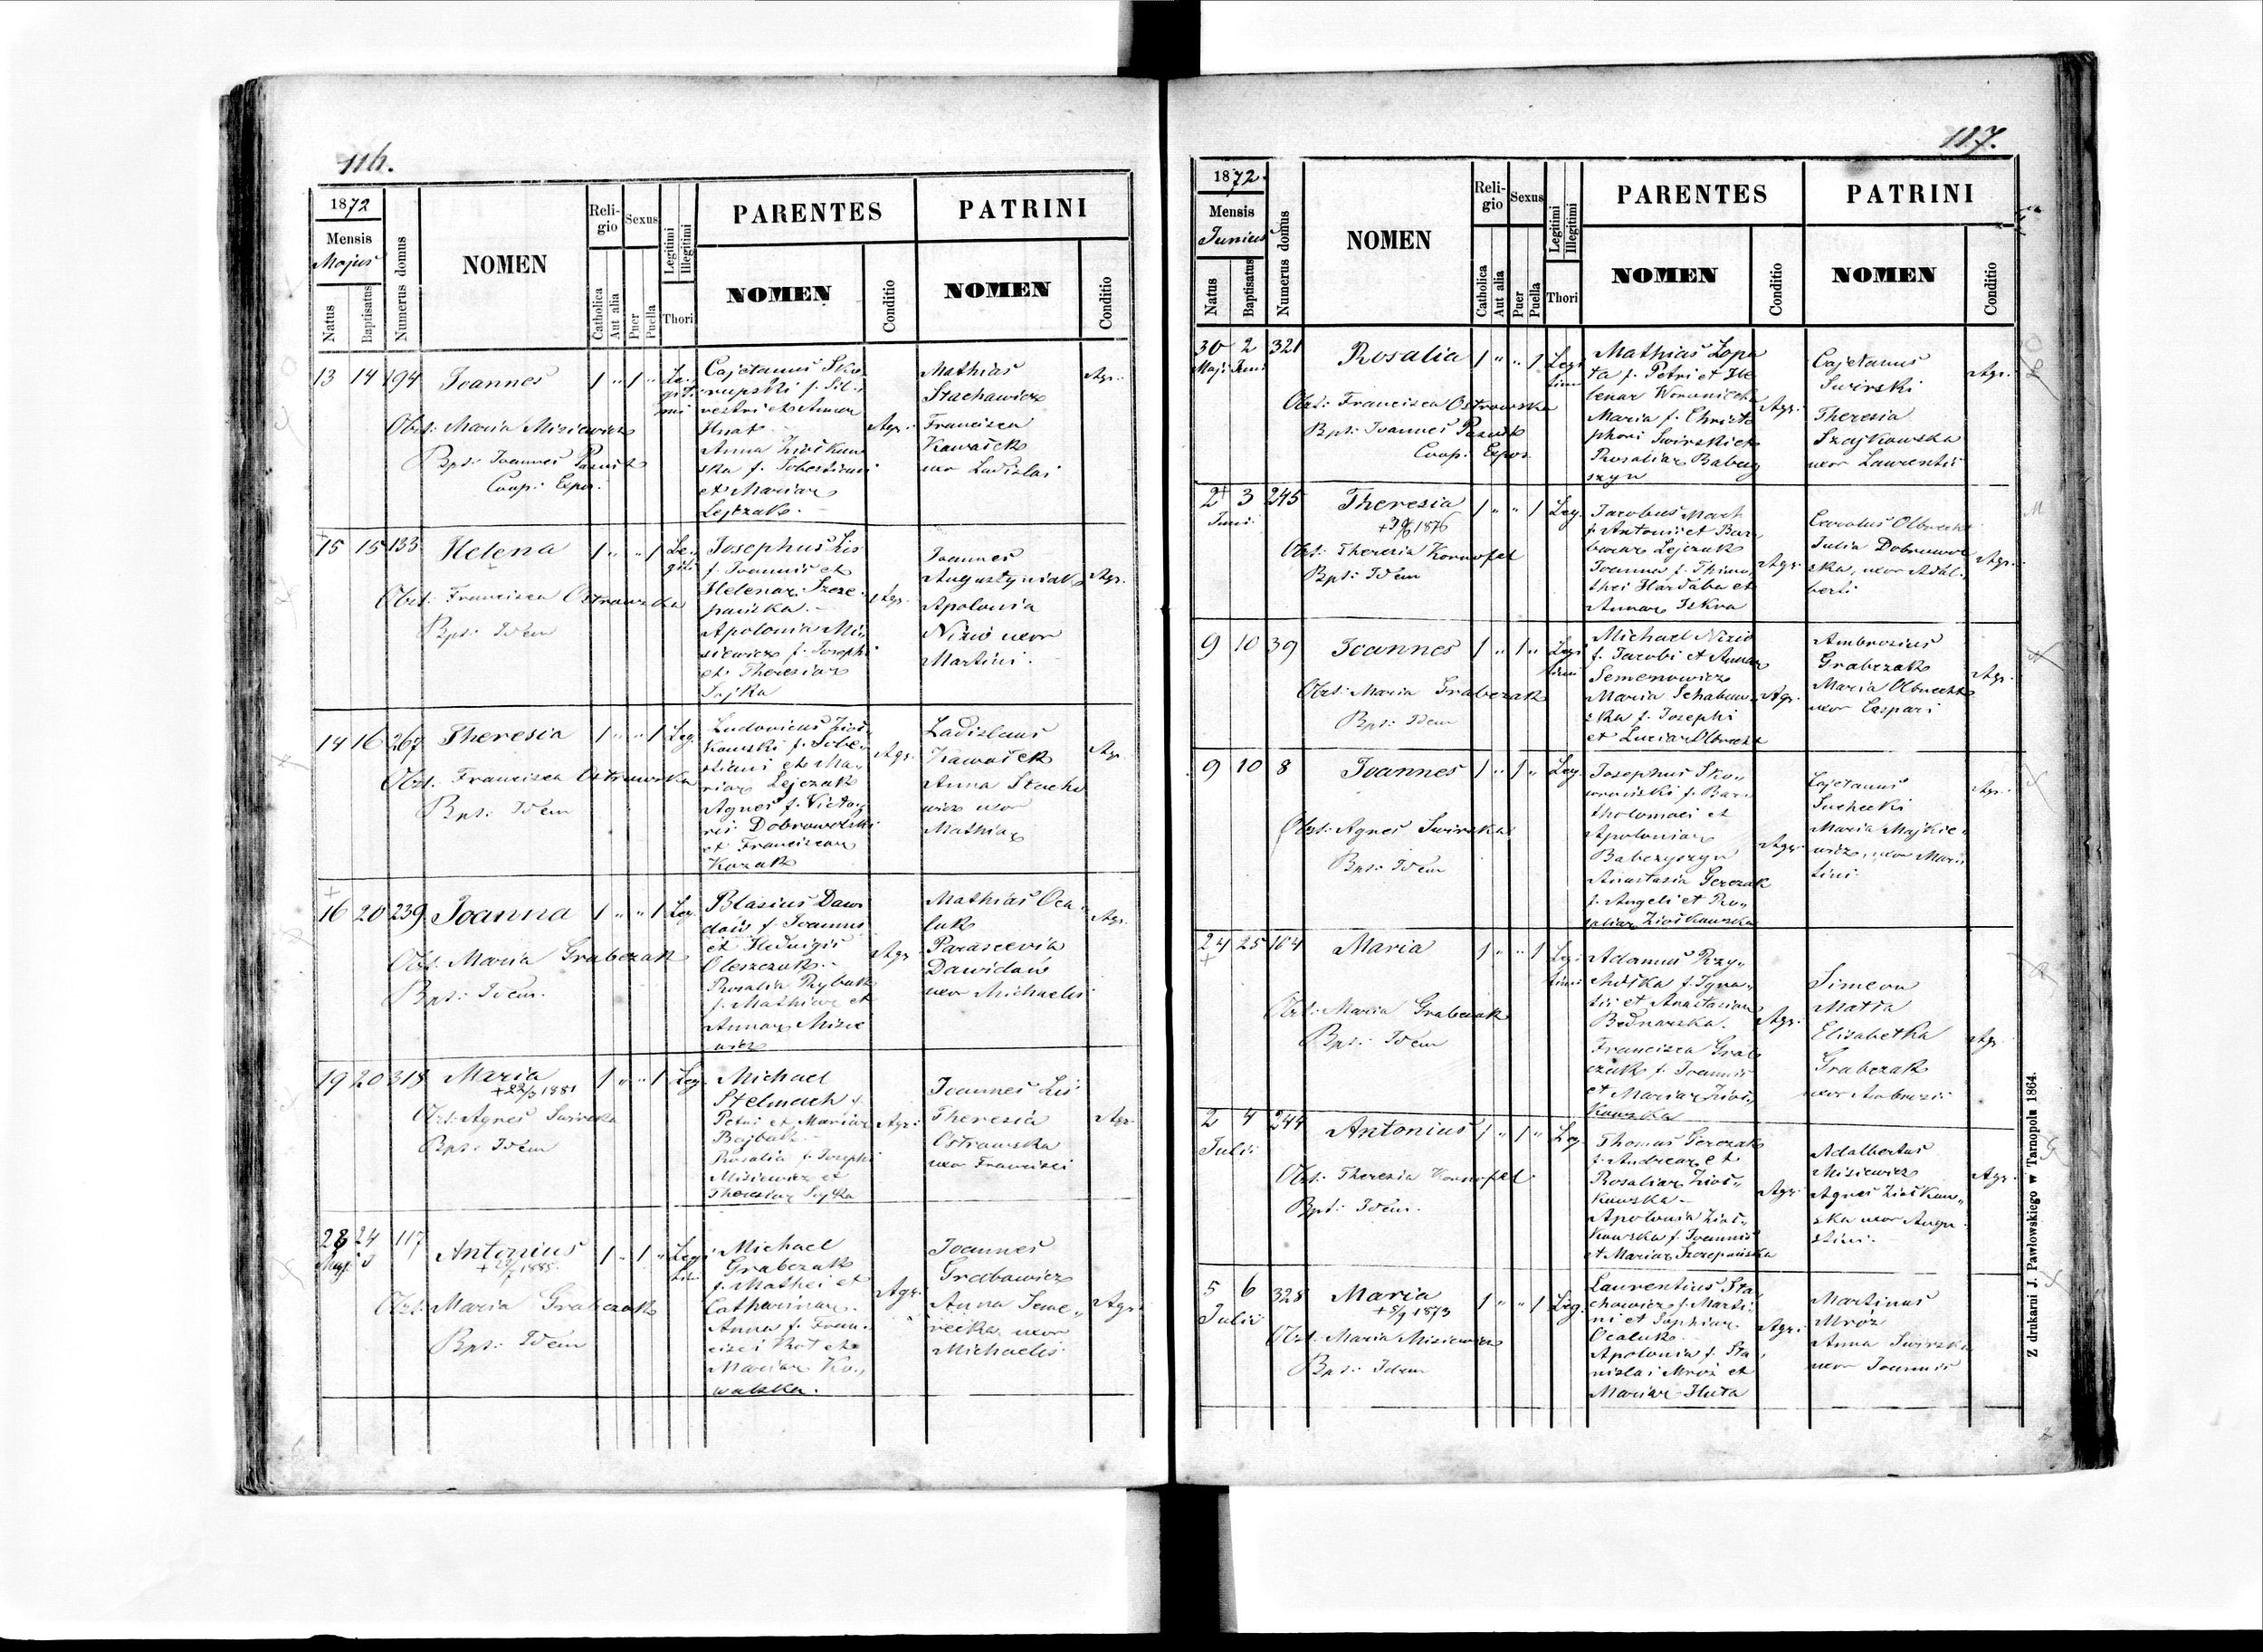 116.
1872
Mensis
Majus
Natus
Baptisatus
Numerus domus
NOMEN
Religio
Catholica
Aut alia
Sexus
Puer
Puella
Legitimi
Illegitimi
Thori
PARENTES
NOMEN
Conditio
PATRINI
NOMEN
Conditio
13 14 194 Joannes 1 " 1 " Legitimi
Obst: Maria Misiewicz
Bpt: Joannes
Coop: Expos.
Cajetanus
f. Sil-
vestri et Annae
Hnat
Anna Ziółkow
ska f. Sebastiani
et Mariae
Lejczak.
Agr.
Mathias
Stachawicz
Francisca
Kawałek
uxor Ladislai
Agr.
15 15 133 Helena 1 " " 1 Legit.
Obst. Francisca Ostrowska
Bpt: Idem
Josephus Lis
f. Joannis et
Helenae Szcze-
pańska.
Apolonia Mi-
siewicz f. Josephi
et Theresiae
Sojka
Agr.
Joannes
Augustyniak
Apolonia
Nizio uxor
Martini.
Agr.
14 16 267 Theresia 1 " " 1 Leg.
Obst. Francisca Ostrowska
Bpt: Idem
Ludovicus Ziół-
kowski f. Seba-
stiani et Ma-
riae Lejczak
Agnes f. Victo-
ris Dobrowolski
et Franciscae
Kozak
Agr.
Ladislaus
Kawałek
Anna Stacho
wicz uxor
Mathiae
Agr.
16 20 239 Joanna 1 " " 1 Leg.
Obst. Maria Grabczak
Bpt: Idem.
Blasius Dawi
dów f. Joannis
et Hedvigis
Oleszczuk.
Rosalia Rybak
f. Mathiae et
Annae Misie
wicz
Agr.
Mathias Oca-
luk
Parascevia
Dawidów
uxor Michaelis
Agr.
19 20 318 Maria 1 " " 1 Leg.
+22/3 1881
Obst: Agnes Swirska
Bpt: Idem
Michael
Stelmach f.
Petri et Mariae
Bojbak
Rosalia f. Josephi
Misiewicz et
Theresiae Sojka
Agr.
Joannes Lis
Theresia
Ostrowska
uxor Francisci
Agr.
23 24 117 Antonius 1 " 1 " Legit.
Maji
Obst: Maria Grabczak
Bpt: Idem
Michael
Grabczak
f. Mathei et
Catharinae.
Anna f. Fran-
cisci Kot et
Mariae Ko-
walska.
Agr.
Joannes
Grabowicz
Anna Seme-
recka uxor
Michaelis
Agr.
117.
1872.
Mensis
Junius
Natus
Baptisatus
Numerus domus
NOMEN
Religio
Catholica
Aut alia
Sexus
Puer
Puella
Legitimi
Illegitimi
Thori
PARENTES
NOMEN
Conditio
PATRINI
NOMEN
Conditio
30 2 321 Rosalia 1 " " 1 Legitimi
Maji Juni
Obst: Francisca Ostrowska
Bpt: Joannes
Coop: Expos.
Mathias Łopa
ta f. Petri et He
lenae
Maria f. Christo
phori Swirski et
Rosaliae Babczy
szyn
Agr.
Cajetanus
Swirski
Theresia
Szajkowska
uxor Laurentii
Agr.
2 3 245 Theresia 1 " " 1 Leg.
Juni
Obst: Theresia Kornafel
Bpt: Idem
Jacobus
f. Antoni et Bar-
barae Lejczak
Joanna f. Thimo-
thei Hardaba et
Annae Iskra
Agr.
Carolus Olbrecht
Julia Dobrowol
ska, uxor Adal-
berti
Agr.
9 10 39 Joannes 1 " 1 " Legitimi
Obst: Maria Grabczak
Bpt: Idem
Michael Nizio
f. Jacobi et Annae
Semenowicz
Maria
ska f. Josephi
et Luciae Olbrecht
Agr.
Ambrosius
Grabczak
Maria Olbrecht
uxor Caspari
Agr.
9 10 8 Joannes 1 " 1 " Leg.
Obst: Agnes Swirska
Bpt: Idem
Josephus Sko-
wroński f. Bar-
tholomaei et
Apoloniae
Babczyszyn
Anastasia Gerczak
f. Angeli et Ro-
saliae Ziółkowska
Agr.
Cajetanus
Suchecki
Maria Majkie-
wicz, uxor Mar-
tini
Agr.
24 25 164 Maria 1 " " 1 Legitimi
Obst: Maria Grabczak
Bpt: Idem
Adamus Przy-
f. Igna-
tii et Anastasiae
Bednarska.
Francisca Grab
czak f. Joannis
et Mariae Ziół-
kowska
Agr.
Simeon
Matta
Elisabetha
Grabczak
uxor Ambrosii
Agr.
2 4 244 Antonius 1 " 1 " Leg.
Julii
Obst: Theresia Kornafel
Bpt: Idem.
Thomas Gerczak
f. Andreae et
Rosaliae Ziół-
kowska
Apolonia Ziół-
kowska f. Joannis
et Mariae Szczepańska
Agr.
Adalbertus
Misiewicz
Agnes Ziółkow-
ska uxor Augu-
stini.
Agr.
5 6 328 Maria 1 " " 1 Leg.
Julii
+5/9 1873
Obst: Maria Misiewicz
Bpt: Idem
Laurentius Sta
chowicz f. Marti-
ni et Sophiae
Ocaluk.
Apolonia f. Sta
nislai Mróz et
Mariae Huta
Agr.
Martinus
Mróz
Anna Swirska
uxor Joannis
Z drukarni J. Pawłowskiego w Tarnopolu 1864.